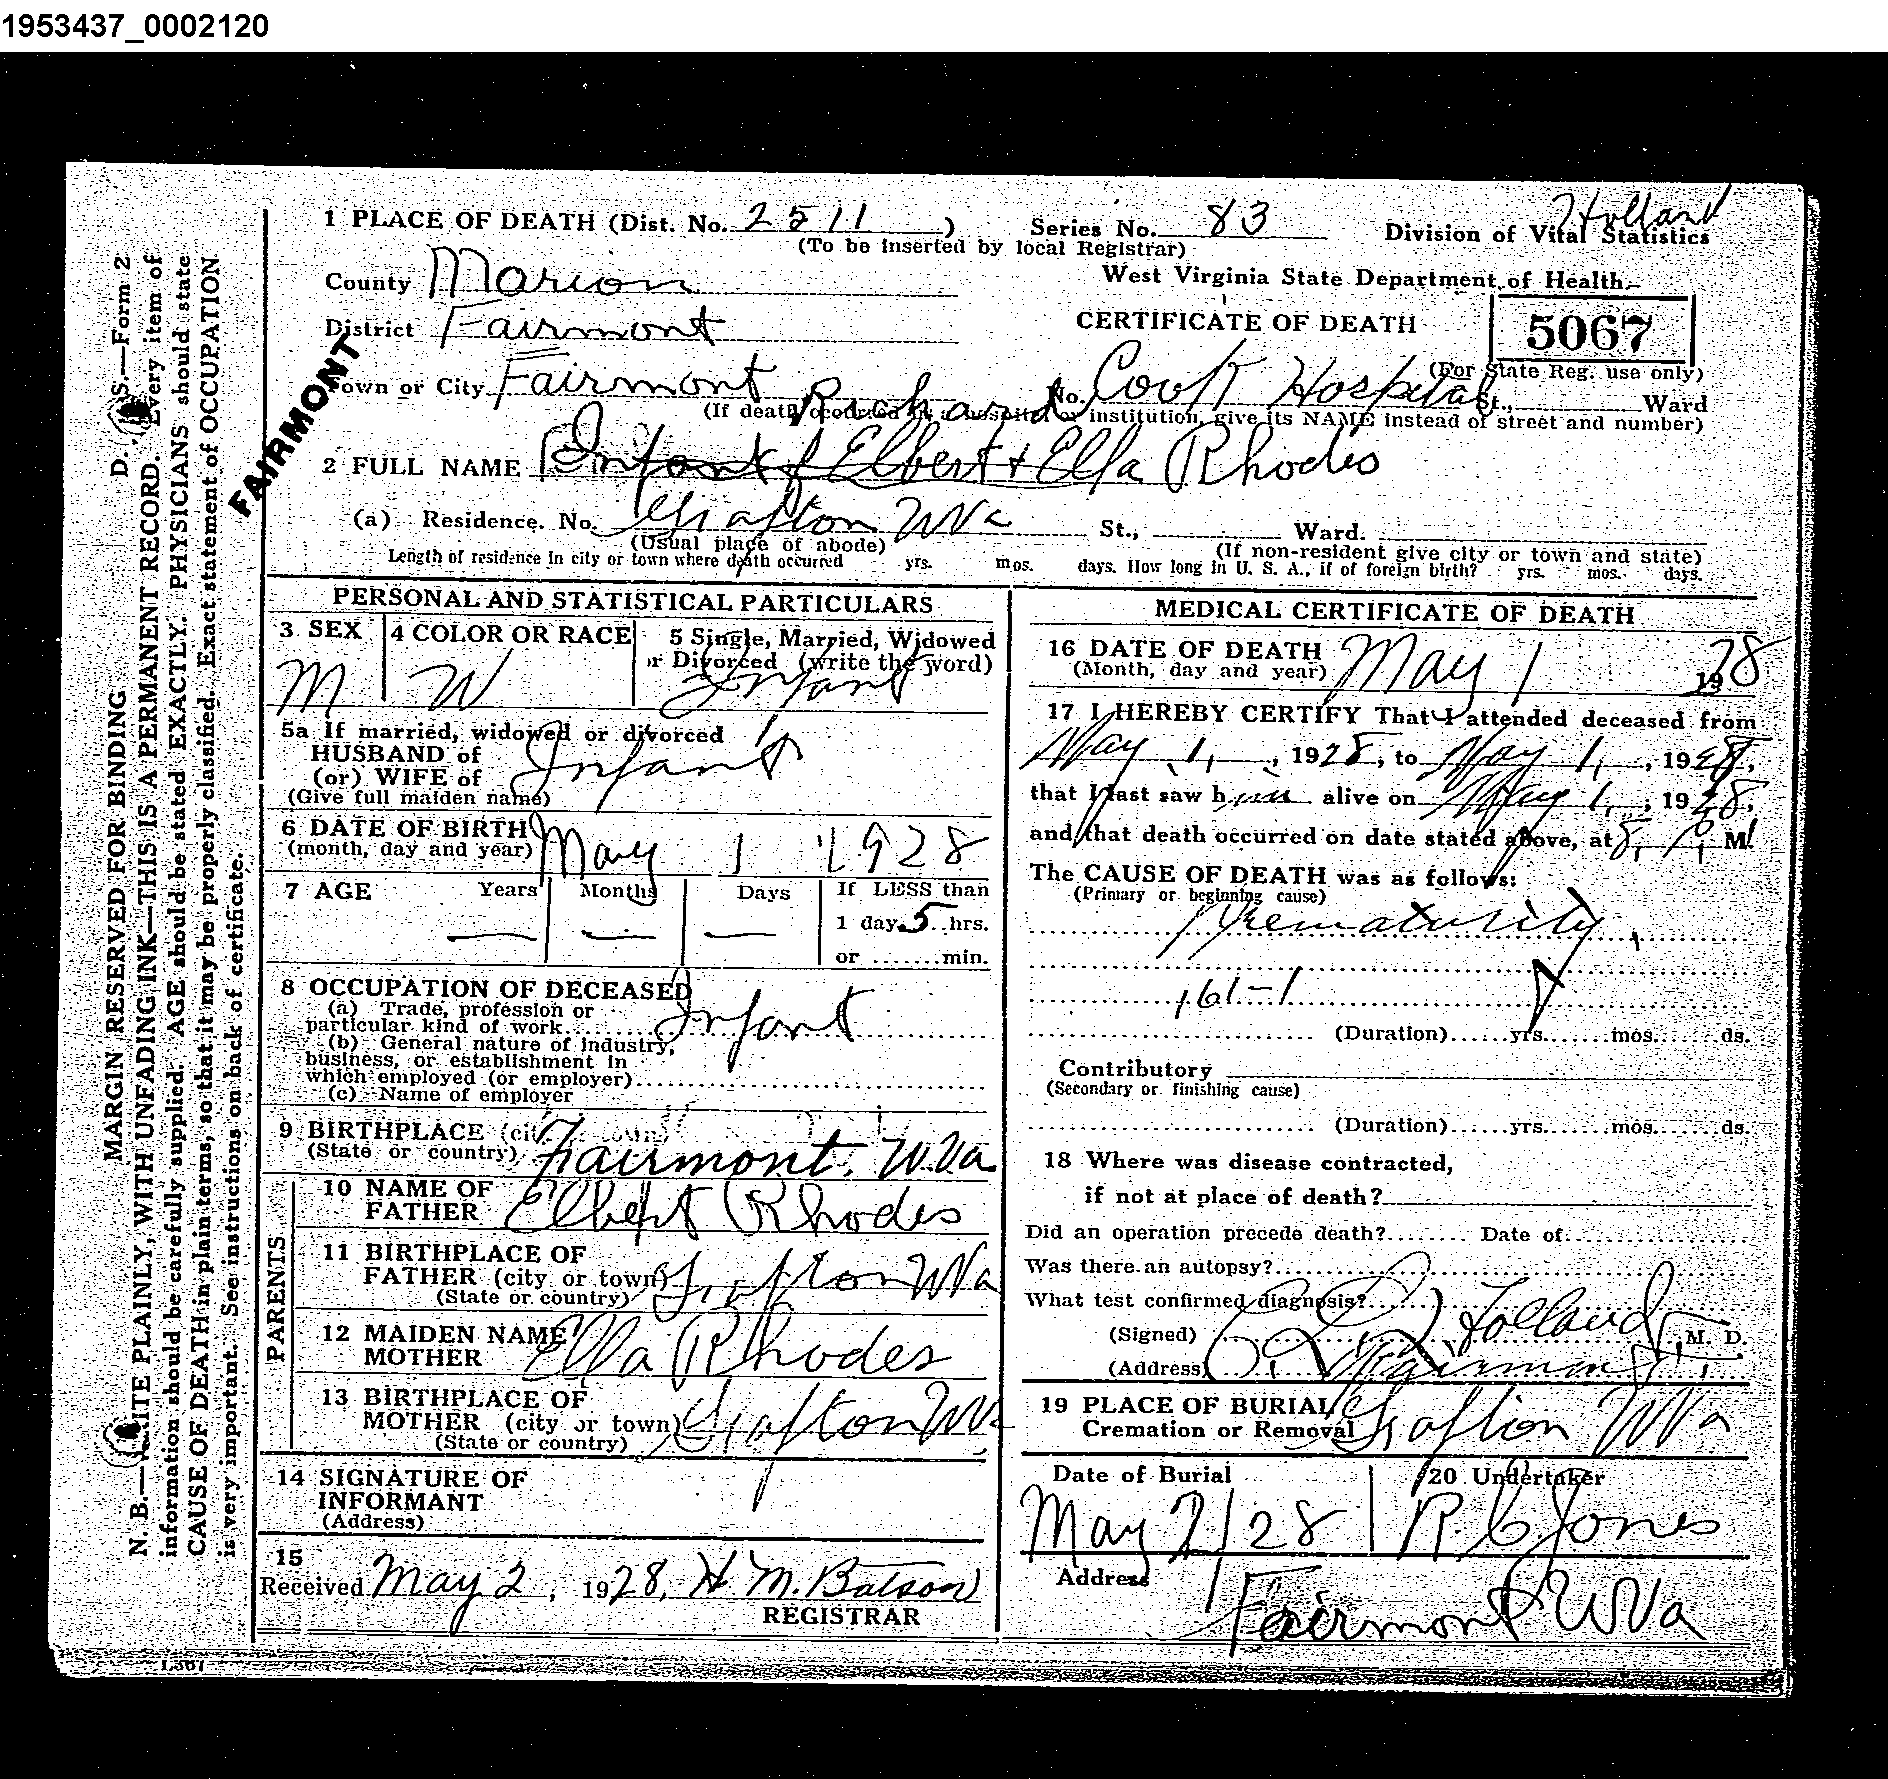 1953437_0002120
1 PLACE OF DEATH (Dist. No. 2511 )
(To be inserted by local Registrar)
Series No. 83
Holland
Division of Vital Statistics
County Marion
West Virginia State Department of Health
District Fairmont
CERTIFICATE OF DEATH
5067
(For State Reg. use only)
FAIRMONT
Town or City Fairmont No. Cook Hospital St., Ward
(If death occurred in a hospital or institution, give its NAME instead of street and number)
Richard
2 FULL NAME Infant of Elbert + Ella Rhodes
(a) Residence. No. Grafton WVa St., Ward.
(Usual place of abode) (If non-resident give city or town and state)
Length of residence in city or town where death occurred yrs. mos. days. How long in U. S. A., if of foreign birth? yrs. mos. days.
PERSONAL AND STATISTICAL PARTICULARS
3 SEX 4 COLOR OR RACE 5 Single, Married, Widowed
or Divorced (write the word)
M W Infant
5a If married, widowed or divorced
HUSBAND of
(or) WIFE of Infant
(Give full maiden name)
6 DATE OF BIRTH May 1 1928
(month, day and year)
7 AGE Years Months Days If LESS than
— — — 1 day 5 hrs.
or ....... min.
8 OCCUPATION OF DECEASED
(a) Trade, profession or
particular kind of work Infant
(b) General nature of industry,
business, or establishment in
which employed (or employer)
(c) Name of employer
9 BIRTHPLACE (city or town)
(State or country) Fairmont. W.Va
PARENTS
10 NAME OF
FATHER Elbert Rhodes
11 BIRTHPLACE OF
FATHER (city or town) Grafton WVa
(State or country)
12 MAIDEN NAME
MOTHER Ella Rhodes
13 BIRTHPLACE OF
MOTHER (city or town) Grafton WVa
(State or country)
14 SIGNATURE OF
INFORMANT
(Address)
15
Received May 2, 1928, H. M. Batson
REGISTRAR
MEDICAL CERTIFICATE OF DEATH
16 DATE OF DEATH May 1 1928
(Month, day and year)
17 I HEREBY CERTIFY That I attended deceased from
May 1, 1928, to May 1, 1928,
that I last saw him alive on May 1, 1928,
and that death occurred on date stated above, at 8, P, M.
The CAUSE OF DEATH was as follows:
(Primary or beginning cause)
Prematurity,
161-1
(Duration) yrs. mos. ds.
Contributory
(Secondary or finishing cause)
(Duration) yrs. mos. ds.
18 Where was disease contracted,
if not at place of death?
Did an operation precede death? Date of
Was there an autopsy?
What test confirmed diagnosis?
(Signed) Holland M. D.
(Address) Fairmont
19 PLACE OF BURIAL
Cremation or Removal Grafton WVa
Date of Burial 20 Undertaker
May 2/28 R. C. Jones
Address
Fairmont WVa
D. S.—Form 2
MARGIN RESERVED FOR BINDING
N. B.—WRITE PLAINLY, WITH UNFADING INK—THIS IS A PERMANENT RECORD. Every item of
information should be carefully supplied. AGE should be stated EXACTLY. PHYSICIANS should state
CAUSE OF DEATH in plain terms, so that it may be properly classified. Exact statement of OCCUPATION
is very important. See instructions on back of certificate.